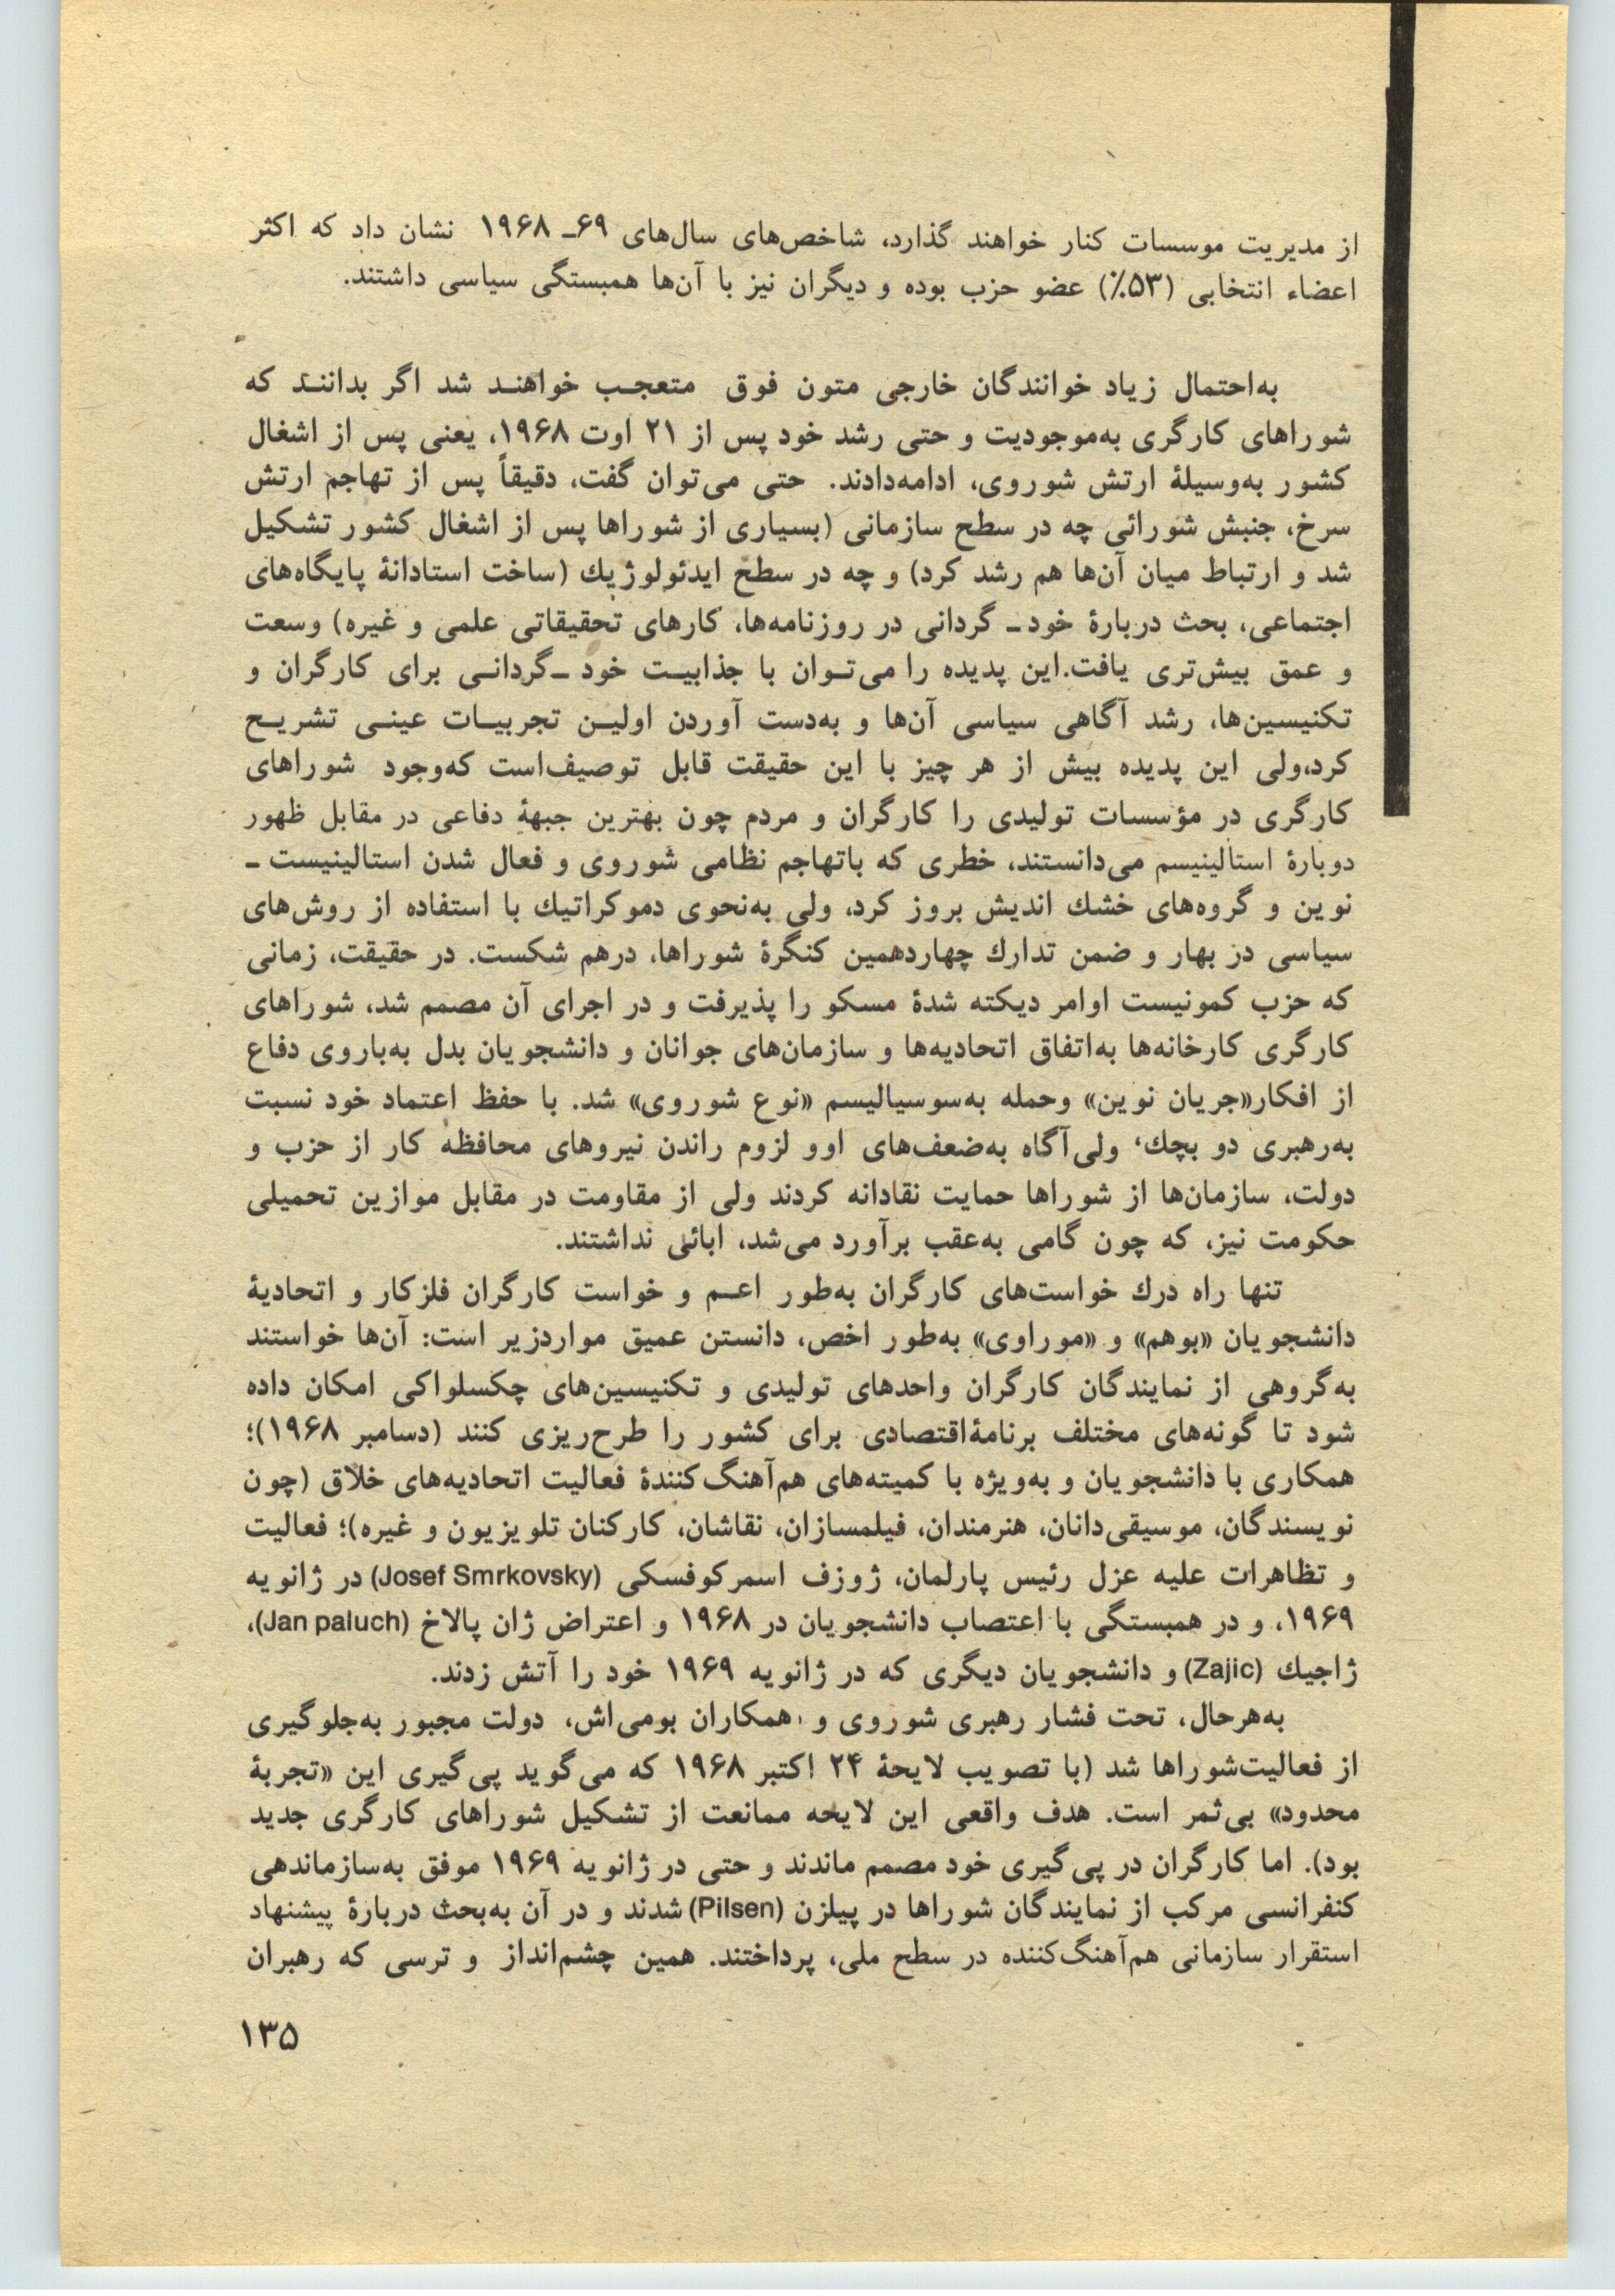 از مدیریت موسسات کنار خواهند گذارد، شاخص‌های سال‌های ۶۹ـ ۱۹۶۸ نشان داد که اکثر
اعضاء انتخابی (۵۳٪) عضو حزب بوده و دیگران نیز با آن‌ها همبستگی سیاسی داشتند.
به‌احتمال زیاد خوانندگان خارجی متون فوق متعجـب خواهنـد شد اگر بداننـد که
شوراهای کارگری به‌موجودیت و حتی رشد خود پس از ۲۱ اوت ۱۹۶۸، یعنی پس از اشغال
کشور به‌وسیلهٔ ارتش شوروی، ادامه‌دادند. حتی می‌توان گفت، دقیقاً پس از تهاجم ارتش
سرخ، جنبش شورائی چه در سطح سازمانی (بسیاری از شوراها پس از اشغال کشور تشکیل
شد و ارتباط میان آن‌ها هم رشد کرد) و چه در سطح ایدئولوژیك (ساخت استادانهٔ پایگاه‌های
اجتماعی، بحث دربارهٔ خود ـ گردانی در روزنامه‌ها، کارهای تحقیقاتی علمی و غیره) وسعت
و عمق بیش‌تری یافت.این پدیده را می‌تـوان با جذابیـت خود ـگردانـی برای کارگران و
تکنیسین‌ها، رشد آگاهی سیاسی آن‌ها و به‌دست آوردن اولیـن تجربیـات عینـی تشریـح
کرد،ولی این پدیده بیش از هر چیز با این حقیقت قابل توصیف‌است که‌وجود شوراهای
کارگری در مؤسسات تولیدی را کارگران و مردم چون بهترین جبههٔ دفاعی در مقابل ظهور
دوبارهٔ استالینیسم می‌دانستند، خطری که باتهاجم نظامی شوروی و فعال شدن استالینیست ـ
نوین و گروه‌های خشك اندیش بروز کرد، ولی به‌نحوی دموکراتیك با استفاده از روش‌های
سیاسی در بهار و ضمن تدارك چهاردهمین کنگرهٔ شوراها، درهم شکست. در حقیقت، زمانی
که حزب کمونیست اوامر دیکته شدهٔ مسکو را پذیرفت و در اجرای آن مصمم شد، شوراهای
کارگری کارخانه‌ها به‌اتفاق اتحادیه‌ها و سازمان‌های جوانان و دانشجویان بدل به‌باروی دفاع
از افکار«جریان نوین» وحمله به‌سوسیالیسم «نوع شوروی» شد. با حفظ اعتماد خود نسبت
به‌رهبری دو بچك، ولی‌آگاه به‌ضعف‌های اوو لزوم راندن نیروهای محافظه کار از حزب و
دولت، سازمان‌ها از شوراها حمایت نقادانه کردند ولی از مقاومت در مقابل موازین تحمیلی
حکومت نیز، که چون گامی به‌عقب برآورد می‌شد، ابائی نداشتند.
تنها راه درك خواست‌های کارگران به‌طور اعـم و خواست کارگران فلزکار و اتحادیهٔ
دانشجویان «بوهم» و «موراوی» به‌طور اخص، دانستن عمیق مواردزیر است: آن‌ها خواستند
به‌گروهی از نمایندگان کارگران واحدهای تولیدی و تکنیسین‌های چکسلواکی امکان داده
شود تا گونه‌های مختلف برنامهٔ‌اقتصادی برای کشور را طرح‌ریزی کنند (دسامبر ۱۹۶۸)؛
همکاری با دانشجویان و به‌ویژه با کمیته‌های هم‌آهنگ‌کنندهٔ فعالیت اتحادیه‌های خلاق (چون
نویسندگان، موسیقی‌دانان، هنرمندان، فیلمسازان، نقاشان، کارکنان تلویزیون و غیره)؛ فعالیت
و تظاهرات علیه عزل رئیس پارلمان، ژوزف اسمرکوفسکی (Josef Smrkovsky) در ژانویه
۱۹۶۹، و در همبستگی با اعتصاب دانشجویان در ۱۹۶۸ و اعتراض ژان پالاخ (Jan paluch)،
ژاجیك (Zajic) و دانشجویان دیگری که در ژانویه ۱۹۶۹ خود را آتش زدند.
به‌هرحال، تحت فشار رهبری شوروی و همکاران بومی‌اش، دولت مجبور به‌جلوگیری
از فعالیت‌شوراها شد (با تصویب لایحهٔ ۲۴ اکتبر ۱۹۶۸ که می‌گوید پی‌گیری این «تجربهٔ
محدود» بی‌ثمر است. هدف واقعی این لایحه ممانعت از تشکیل شوراهای کارگری جدید
بود). اما کارگران در پی‌گیری خود مصمم ماندند و حتی در ژانویه ۱۹۶۹ موفق به‌سازماندهی
کنفرانسی مرکب از نمایندگان شوراها در پیلزن (Pilsen) شدند و در آن به‌بحث دربارهٔ پیشنهاد
استقرار سازمانی هم‌آهنگ‌کننده در سطح ملی، پرداختند. همین چشم‌انداز و ترسی که رهبران
۱۳۵